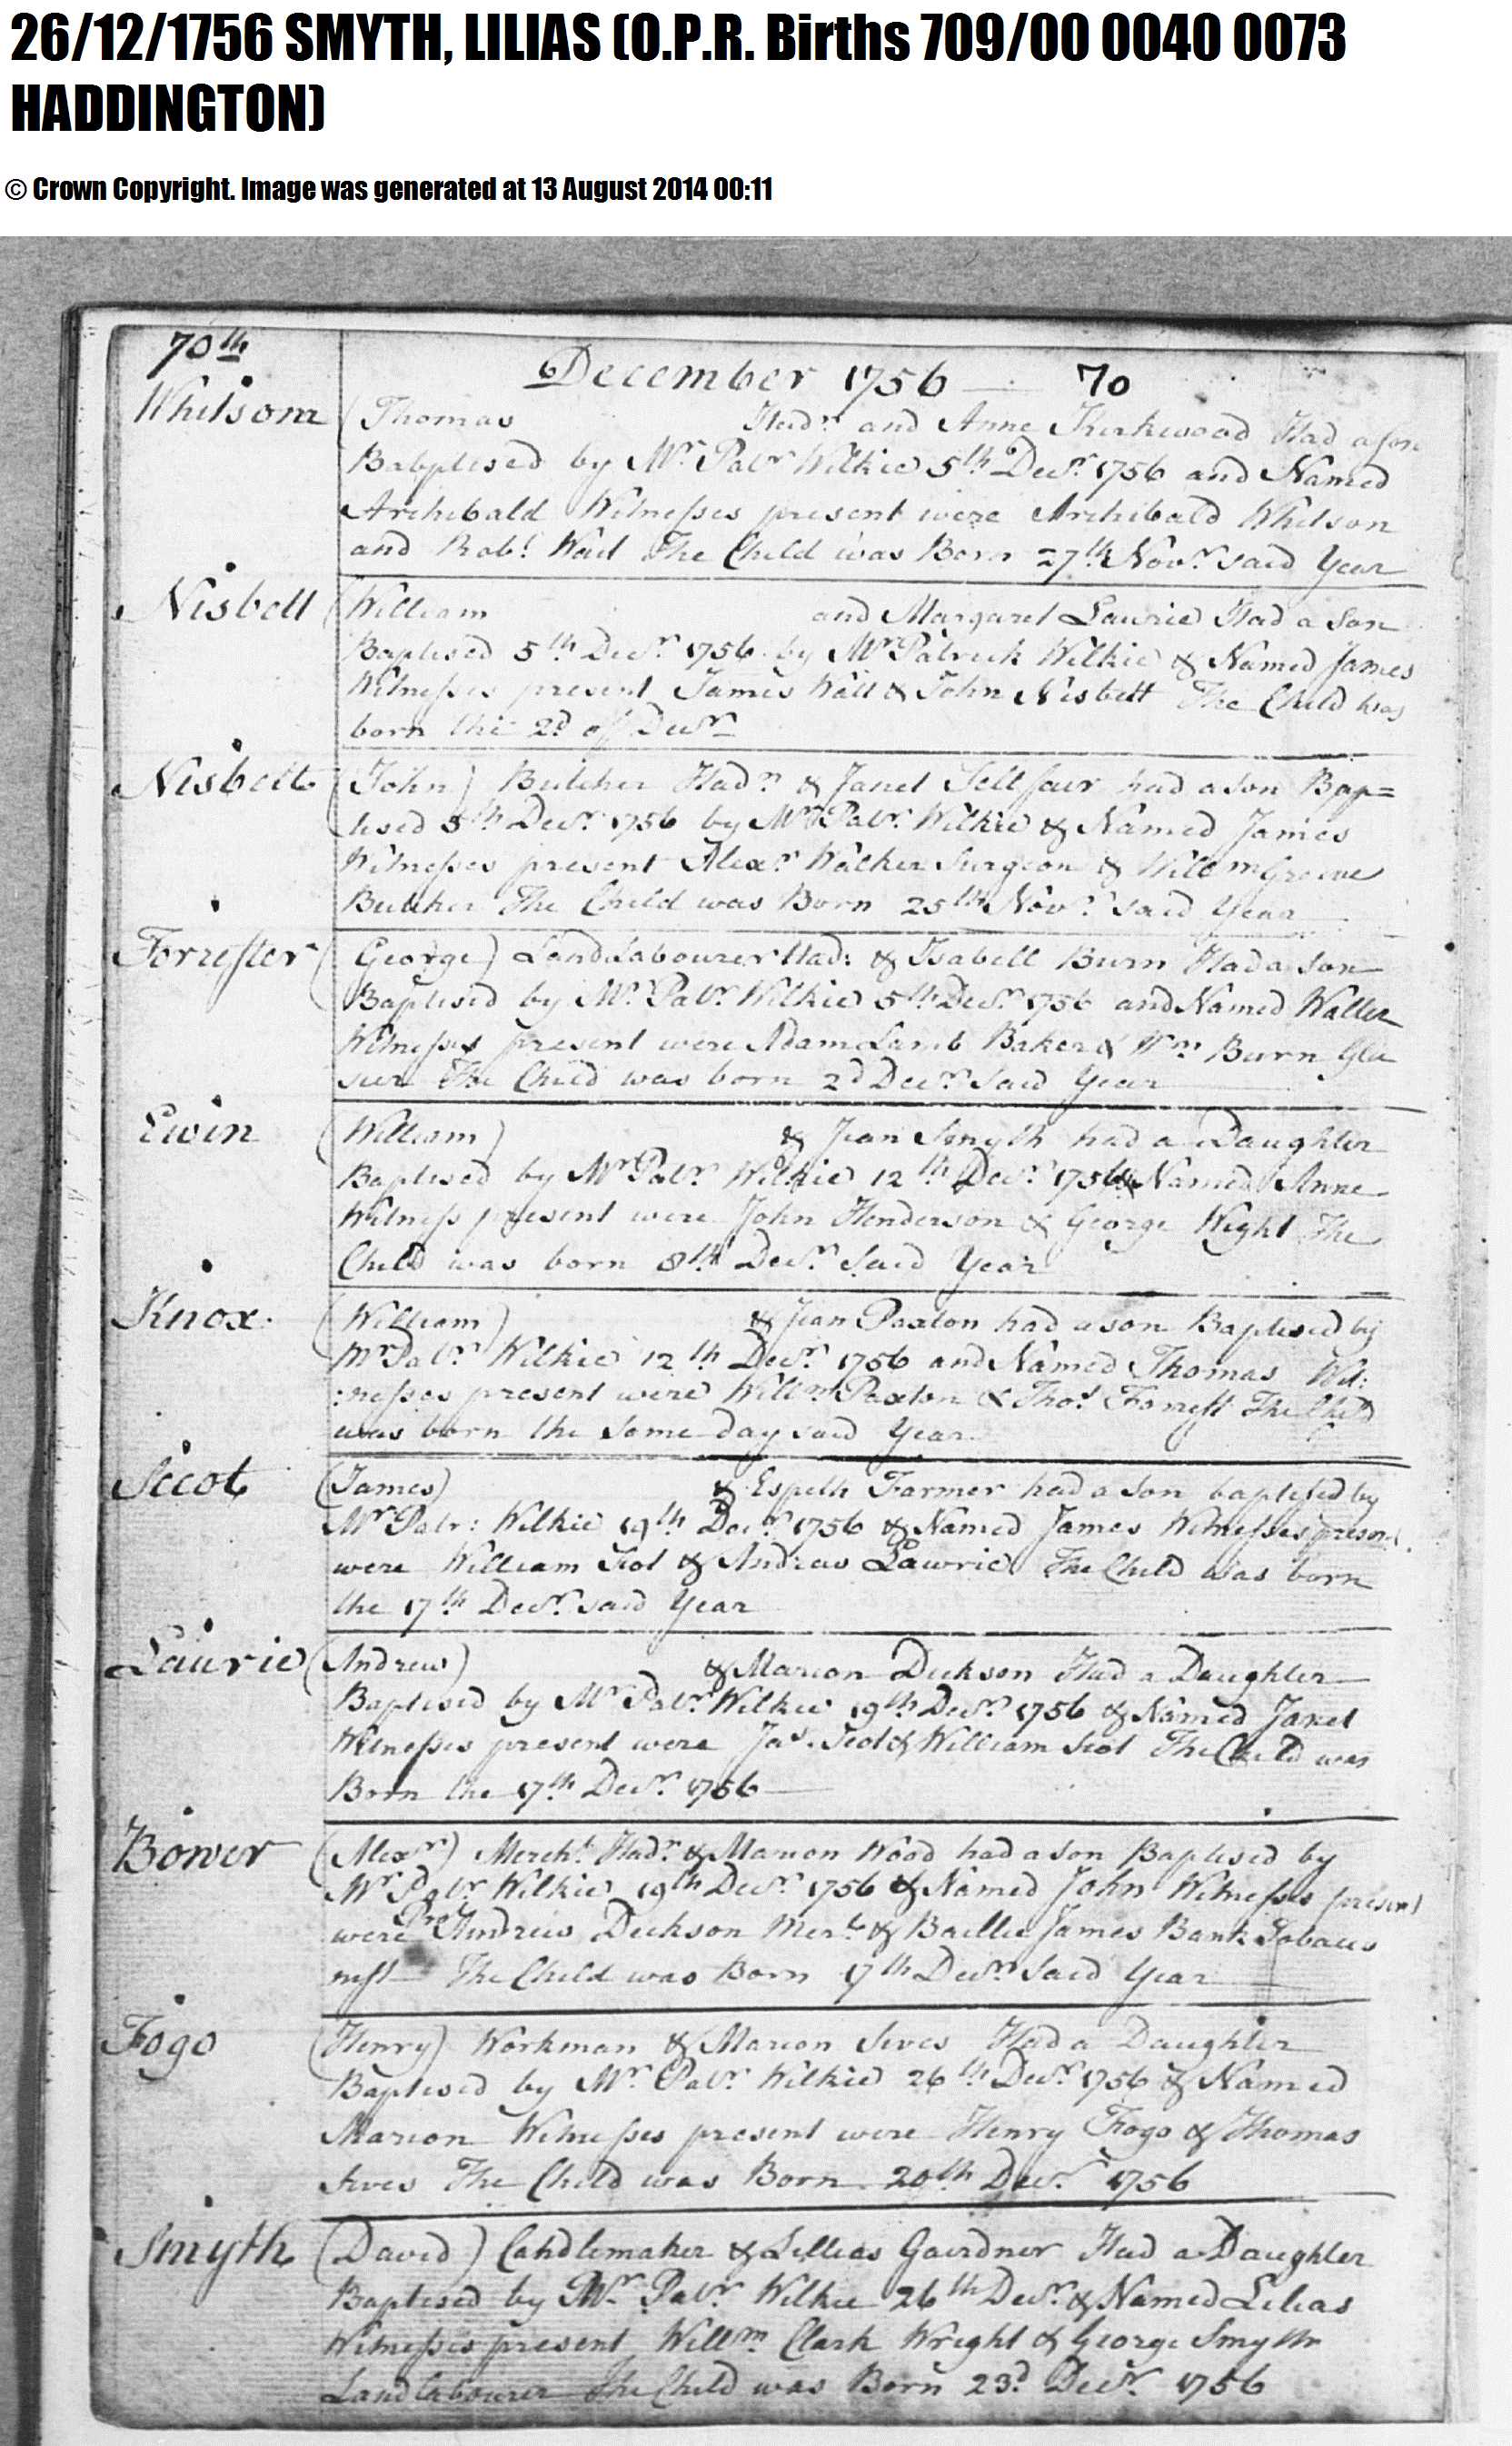 26/12/1756 SMYTH, LILIAS (O.P.R. Births 709/00 0040 0073
HADDINGTON)
© Crown Copyright. Image was generated at 13 August 2014 00:11
70th
December 1756 — 70
Whitsom (Thomas Hadn and Anne Kirkwood Had a son
Babptised by Mr Patr Wilkie 5th Decr 1756 and Named
Archibald Witnesses present were Archibald Whitson
and Robt Wait The Child was Born 27th Novr said Year
Nisbett (William and Margaret Laurie Had a Son
Baptised 5th Decr 1756 by Mr Patrick Wilkie & Named James
Witnesses present James Watt & John Nisbett The Child was
born the 2d of Decr
Nisbett (John) Butcher Hadn & Janet had a son Bap=
tised 5th Decr 1756 by Mr Patr Wilkie & Named James
Witnesses present Alexr Walker Surgeon & Willm Greive
Butcher The Child was Born 25th Novr said Year
Forrester (George) Land Labourer Had: & Isabell Burn Had a son
Baptised by Mr Patr Wilkie 5th Decr 1756 and Named Walter
Witnesses present were Adam Lamb Baker & Wm Burn Gla
sier The Child was born 2d Decr said Year
Ewin (William) & Jean Smyth had a Daughter
Baptised by Mr Patr Wilkie 12th Decr 1756 & Named Anne
Witness present were John Henderson & George Wight The
Child was born 8th Decr Said Year
Knox. (William) & Jean Paxton had a son Baptised by
Mr Patr Wilkie 12th Decr 1756 and Named Thomas Wit:
:nesses present were Willm Paxton & Thos Forrest The Child
was born the same day said Year
Scot (James) & Espeth Farmer had a Son baptised by
Mr Patr: Wilkie 19th Decr 1756 & Named James Witnesses present
were William Scot & Andrew Lawrie The Child was born
the 17th Decr said Year
Laurie (Andrew) & Marion Dickson Had a Daughter
Baptised by Mr Patr Wilkie 19th Decr 1756 & Named Janet
Witnesses present were Jas. Scot & William Scot The Child was
Born the 17th Decr 1756
Bower (Alexr) Mercht Hadn & Marion Wood had a son Baptised by
Mr Patr Wilkie 19th Decr 1756 & Named John Witnesses present
were Pro Andrew Dickson Mert & Baillie James Bank Tobacco
nist The Child was Born 17th Decr Said Year
Fogo (Henry) Workman & Marion Sives Had a Daughter
Baptised by Mr Patr Wilkie 26th Decr 1756 & Named
Marion Witnesses present were Henry Fogo & Thomas
Sives The Child was Born 20th Decr 1756
Smyth (David) Candlemaker & Lillias Gairdner Had a Daughter
Baptised by Mr Patr Wilkie 26th Decr & Named Lilias
Witnesses present Willm Clark Wright & George Smyth
Land labourer The Child was Born 23d Decr 1756